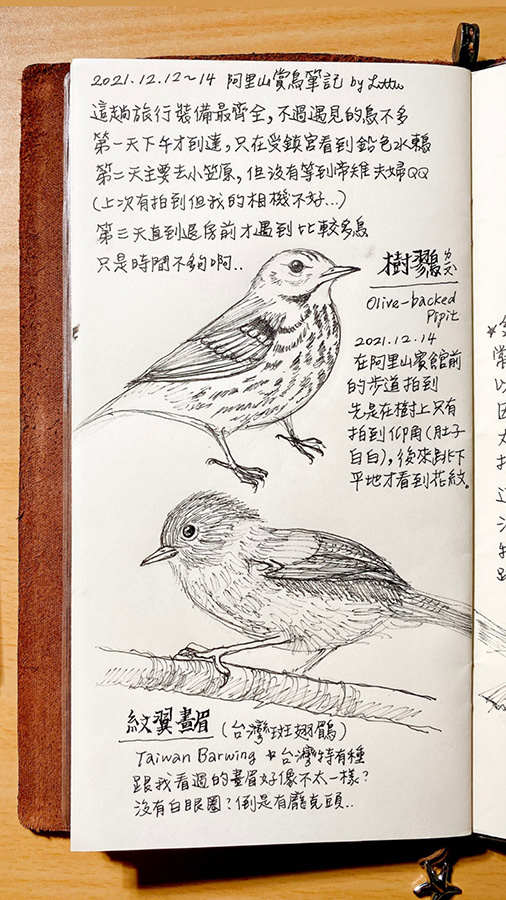 2021.12.12~14 阿里山賞鳥筆記 by Lottu
這趟旅行裝備最齊全，不過遇見的鳥不多
第一天下午才到達，只在受鎮宮看到鉛色水鶇
第二天主要去小笠原，但沒有等到帝雉夫婦QQ
(上次有拍到但我的相機不好...)
第三天直到退房前才遇到比較多鳥
只是時間不夠啊..
樹鷚 ㄌㄧㄡˋ
Olive-backed
Pipit
2021.12.14
在阿里山賓館前
的步道拍到
先是在樹上只有
拍到仰角(肚子
白白)，後來跳下
平地才看到花紋。
紋翼畫眉 (台灣斑翅鶥)
Taiwan Barwing ★台灣特有種
跟我看過的畫眉好像不太一樣?
沒有白眼圈?倒是有龐克頭..